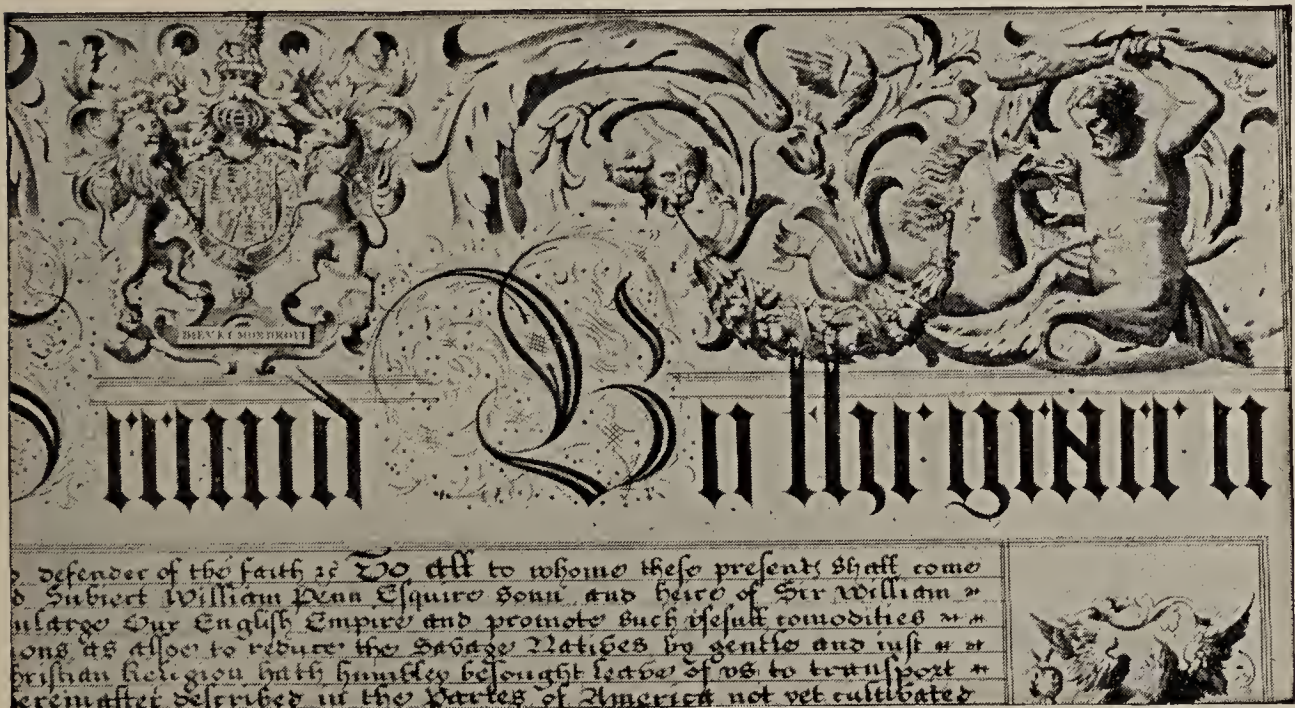 DIEV ET MON DROIT
By the grace o
defender of the faith &c To all to whome these presents Shall come
d Subiect William Penn Esquire Sonn and heire of Sir William
nlarge Our English Empire and promote Such vsefull comodities
ions as alsoe to reduce the Savage Natives by gentle and iust
hristian Religion hath humbley besought leave of vs to transport
hereinafter described in the Partes of America not yet cultivated